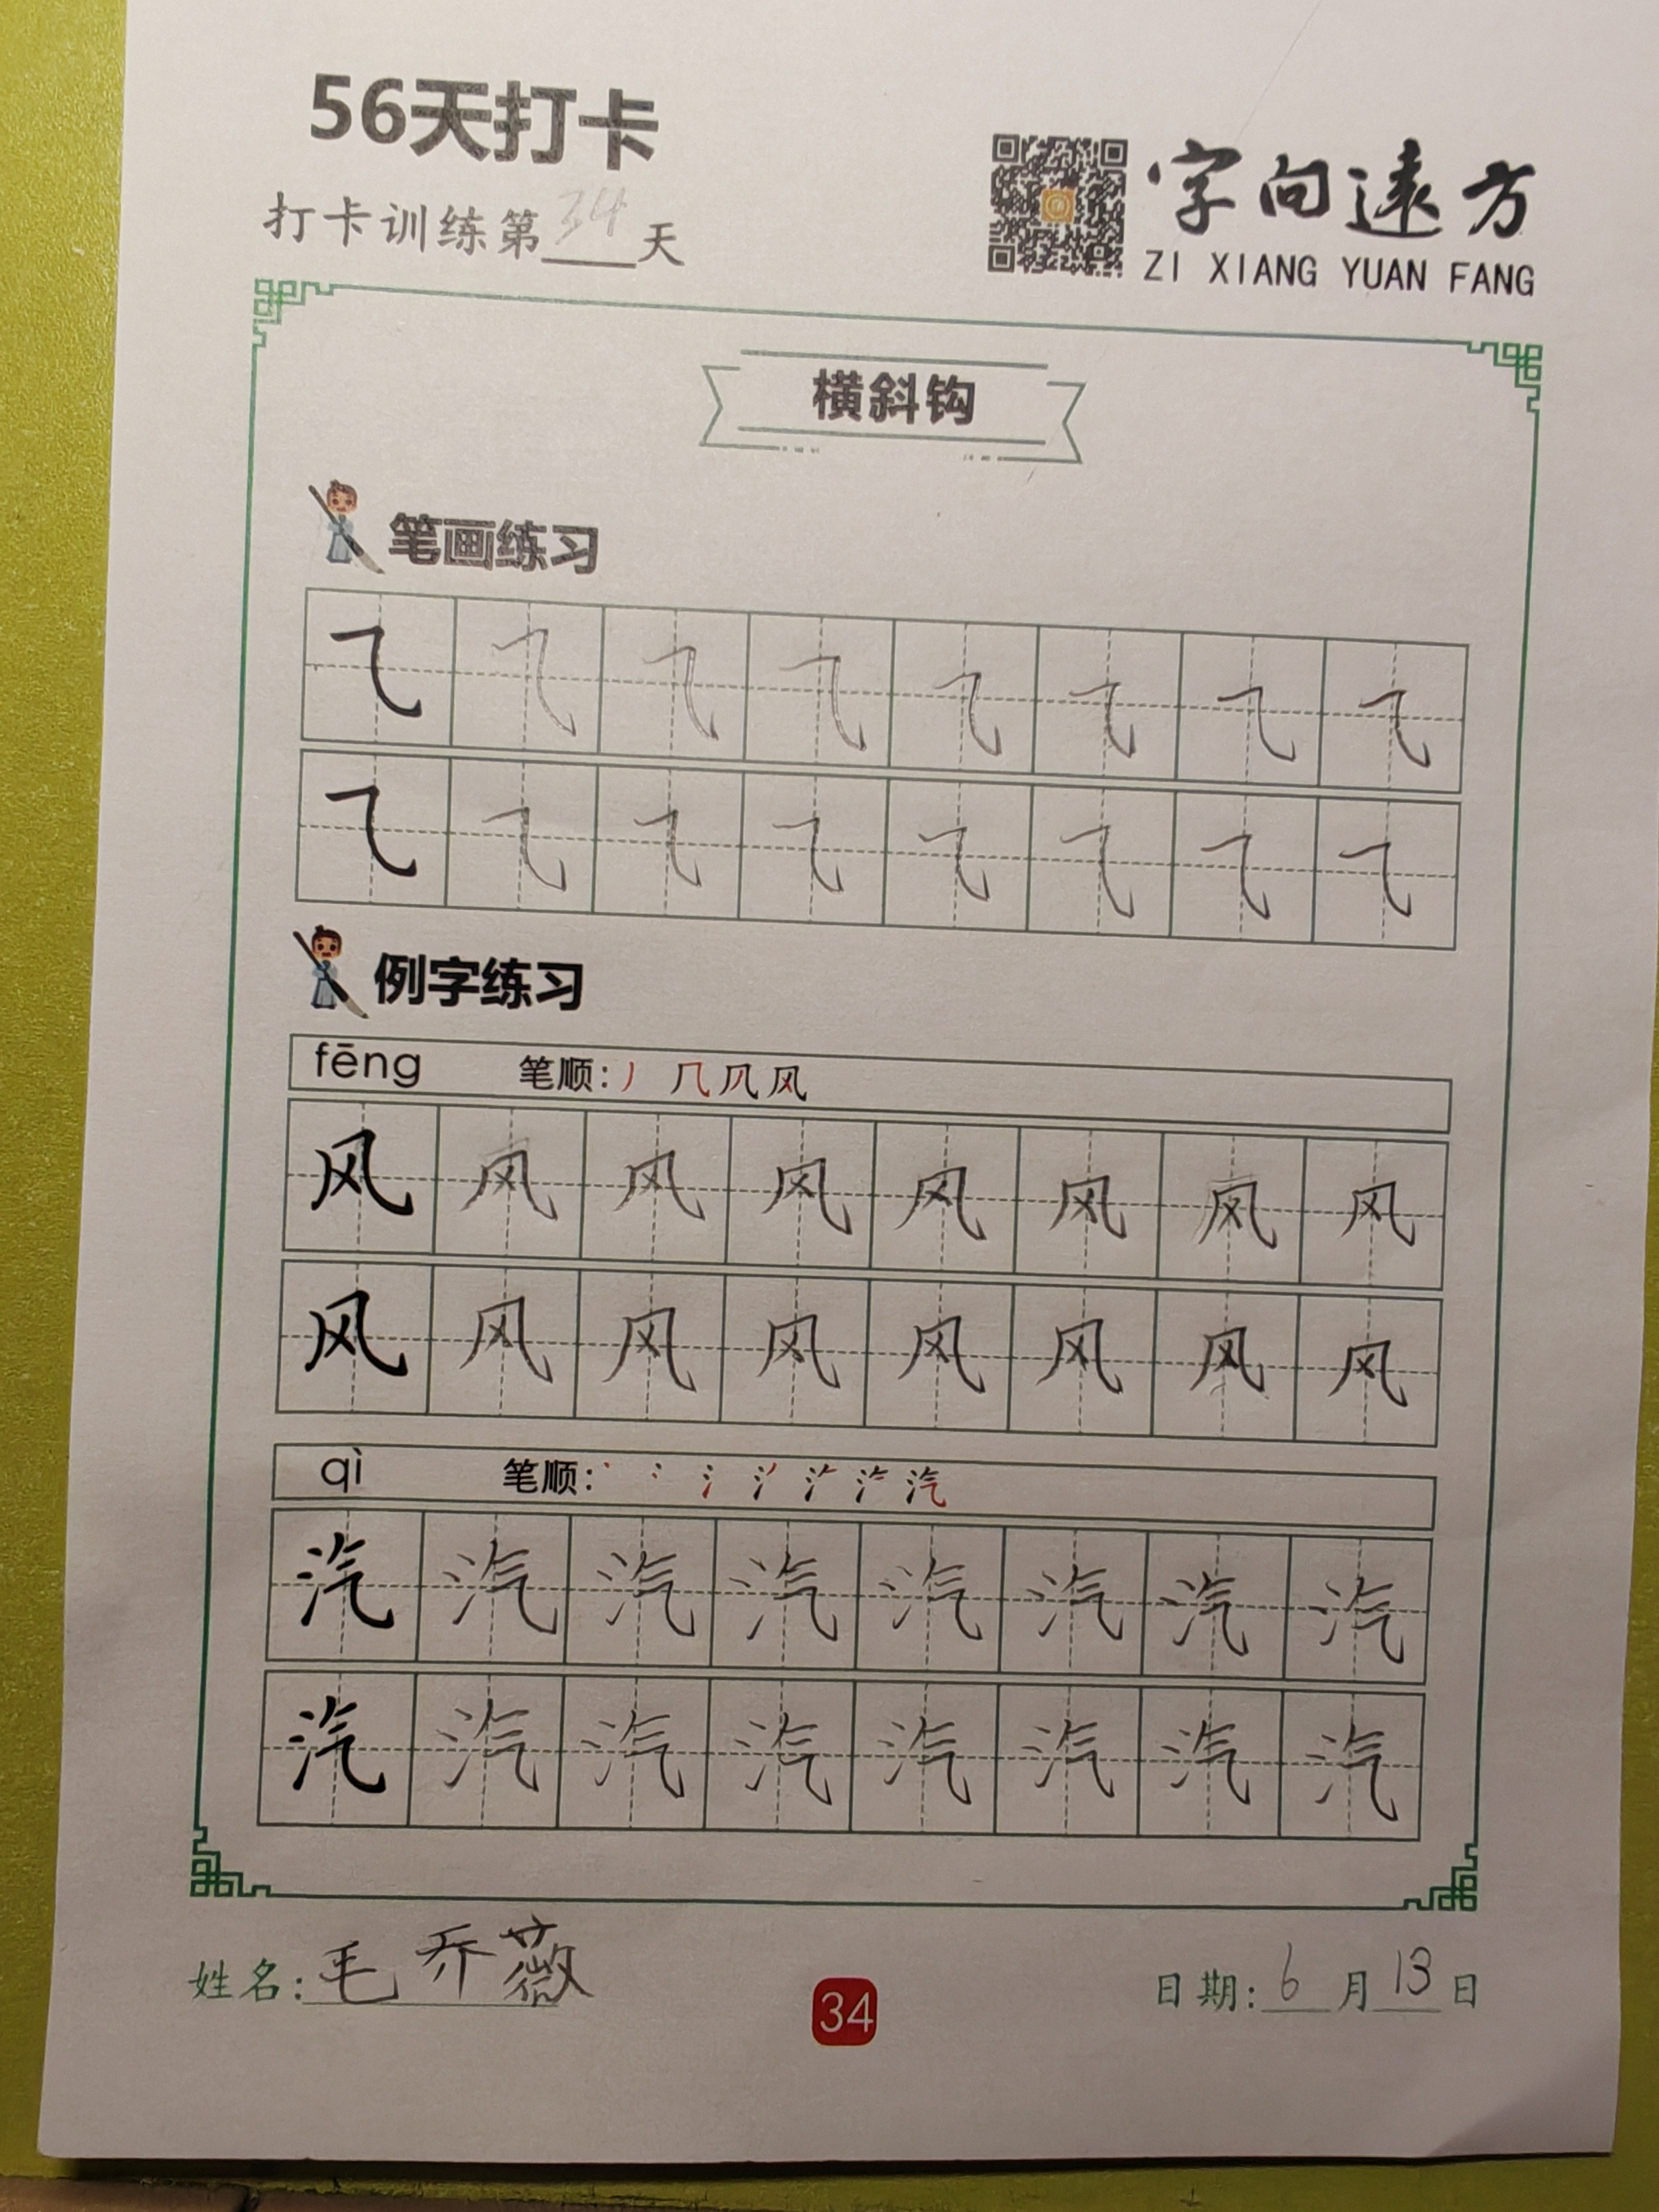 56天打卡
打卡训练第34天
字向遠方
ZI XIANG YUAN FANG
横斜钩
笔画练习
㇈ ㇈ ㇈ ㇈ ㇈ ㇈ ㇈ ㇈
㇈ ㇈ ㇈ ㇈ ㇈ ㇈ ㇈ ㇈
例字练习
fēng 笔顺：丿 几 风
风 风 风 风 风 风 风 风
风 风 风 风 风 风 风 风
qì 笔顺： 氵 汽
汽 汽 汽 汽 汽 汽 汽 汽
汽 汽 汽 汽 汽 汽 汽 汽
姓名：毛乔薇
34
日期：6月13日